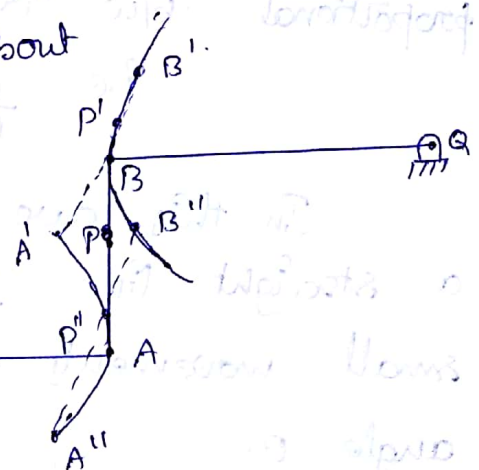 bout
B'
P'
Q
B
B"
A'
P
P"
A
A"